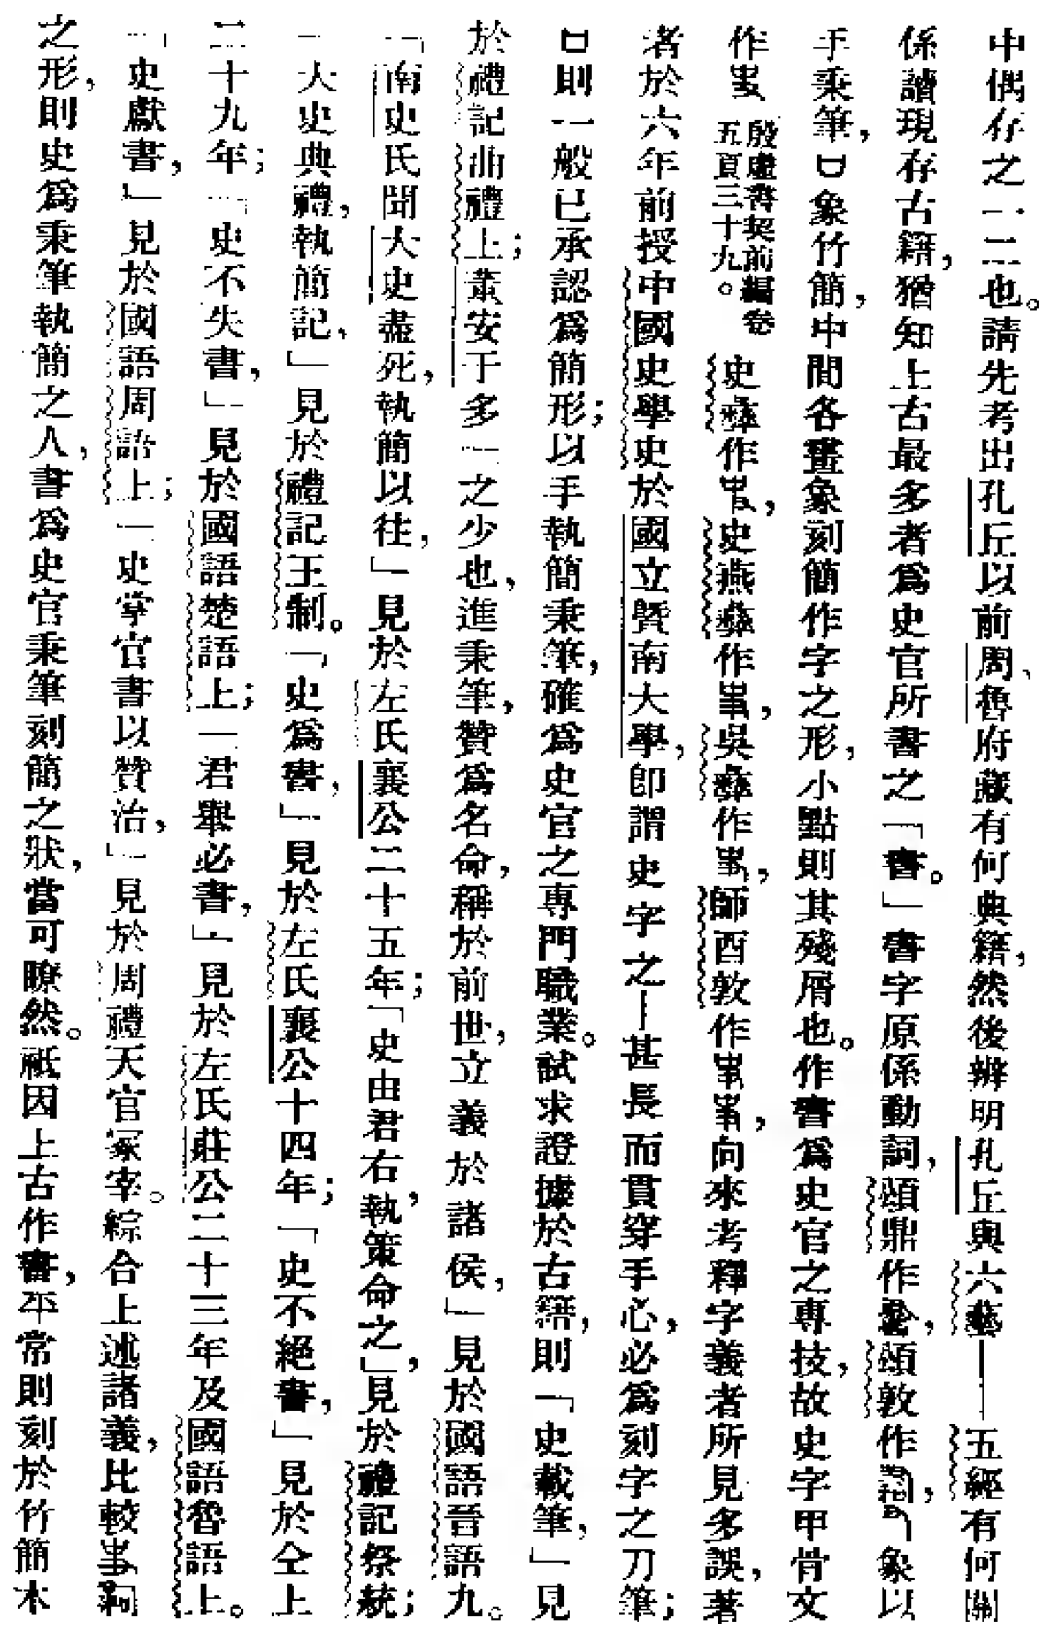 中偶存之一二也。請先考出孔丘以前周、魯府藏有何典籍，然後辨明孔丘與六藝——五經有何關
係讀現存古籍，猶知上古最多者爲史官所書之「書。」書字原係動詞，頌鼎作，頌敦作，象以
手秉筆，口象竹簡，中間各畫象刻簡作字之形，小點則其殘屑也。作書爲史官之專技，故史字甲骨文
作殷虛書契前編卷五頁三十九。史彝作，史燕彝作，吳彝作，師酉敦作，向來考釋字義者所見多誤，著
者於六年前授中國史學史於國立暨南大學，卽謂史字之—甚長而貫穿手心，必爲刻字之刀筆；
口則一般已承認爲簡形；以手執簡秉筆，確爲史官之專門職業。試求證據於古籍，則「史載筆，」見
於禮記曲禮上；「董安于多「之少也，進秉筆，贊爲名命，稱於前世，立義於諸侯，」見於國語晉語九。
「南史氏聞大史盡死，執簡以往，」見於左氏襄公二十五年；「史由君右，執策命之，」見於禮記祭統；
「大史典禮，執簡記，」見於禮記王制。「史爲書，」見於左氏襄公十四年；「史不絕書，」見於仝上
二十九年；「史不失書，」見於國語楚語上；「君舉必書，」見於左氏莊公二十三年及國語魯語上。
「史獻書，」見於國語周語上；「史掌官書以贊治，」見於周禮天官冢宰。綜合上述諸義，比較
之形，則史爲秉筆執簡之人，書爲史官秉筆刻簡之狀，當可瞭然。祗因上古作書，平常則刻於竹簡木